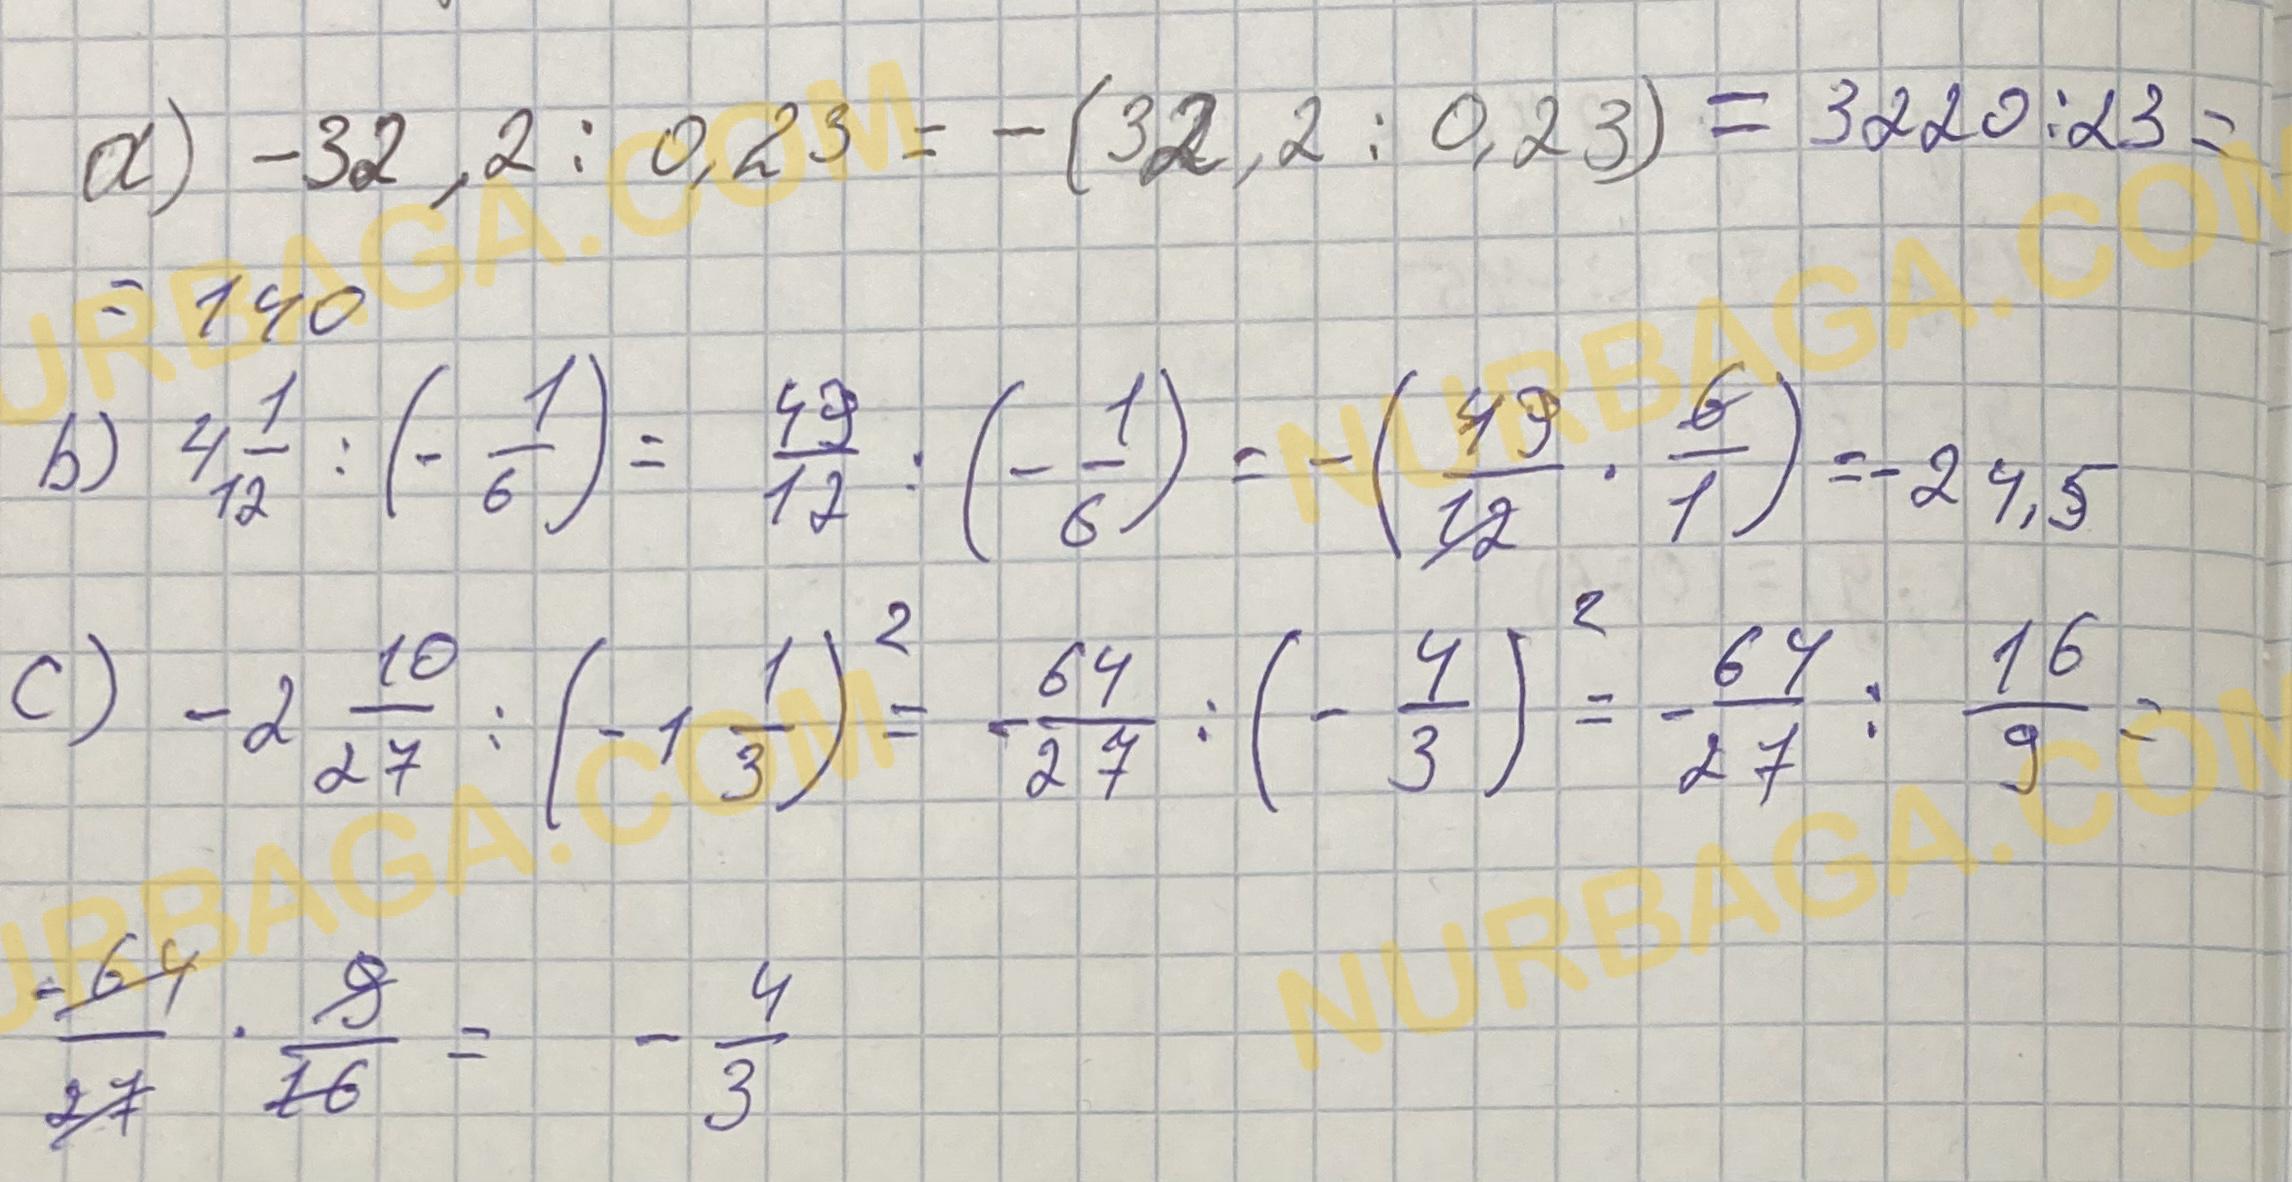 a) -32,2 : 0,23 = -(32,2 : 0,23) = 3220:23 =
= 140
b) 4 1/12 : (- 1/6) = 49/12 : (- 1/6) = -(49/12 · 6/1) = -24,5
c) -2 10/27 : (-1 1/3)² = -64/27 : (- 4/3)² = -64/27 : 16/9 =
-64/27 · 9/16 = - 4/3
NURBAGA.COM
NURBAGA.COM
NURBAGA.COM
NURBAGA.COM